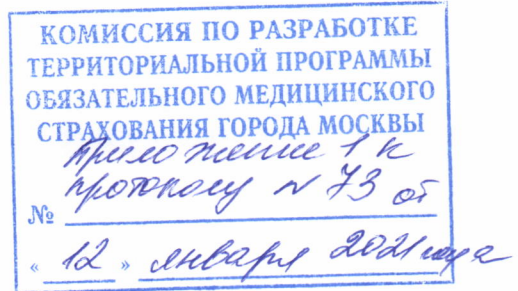 КОМИССИЯ ПО РАЗРАБОТКЕ
ТЕРРИТОРИАЛЬНОЙ ПРОГРАММЫ
ОБЯЗАТЕЛЬНОГО МЕДИЦИНСКОГО
СТРАХОВАНИЯ ГОРОДА МОСКВЫ
Приложение 1 к
№ протоколу № 73 от
« 12 » января 2021 года